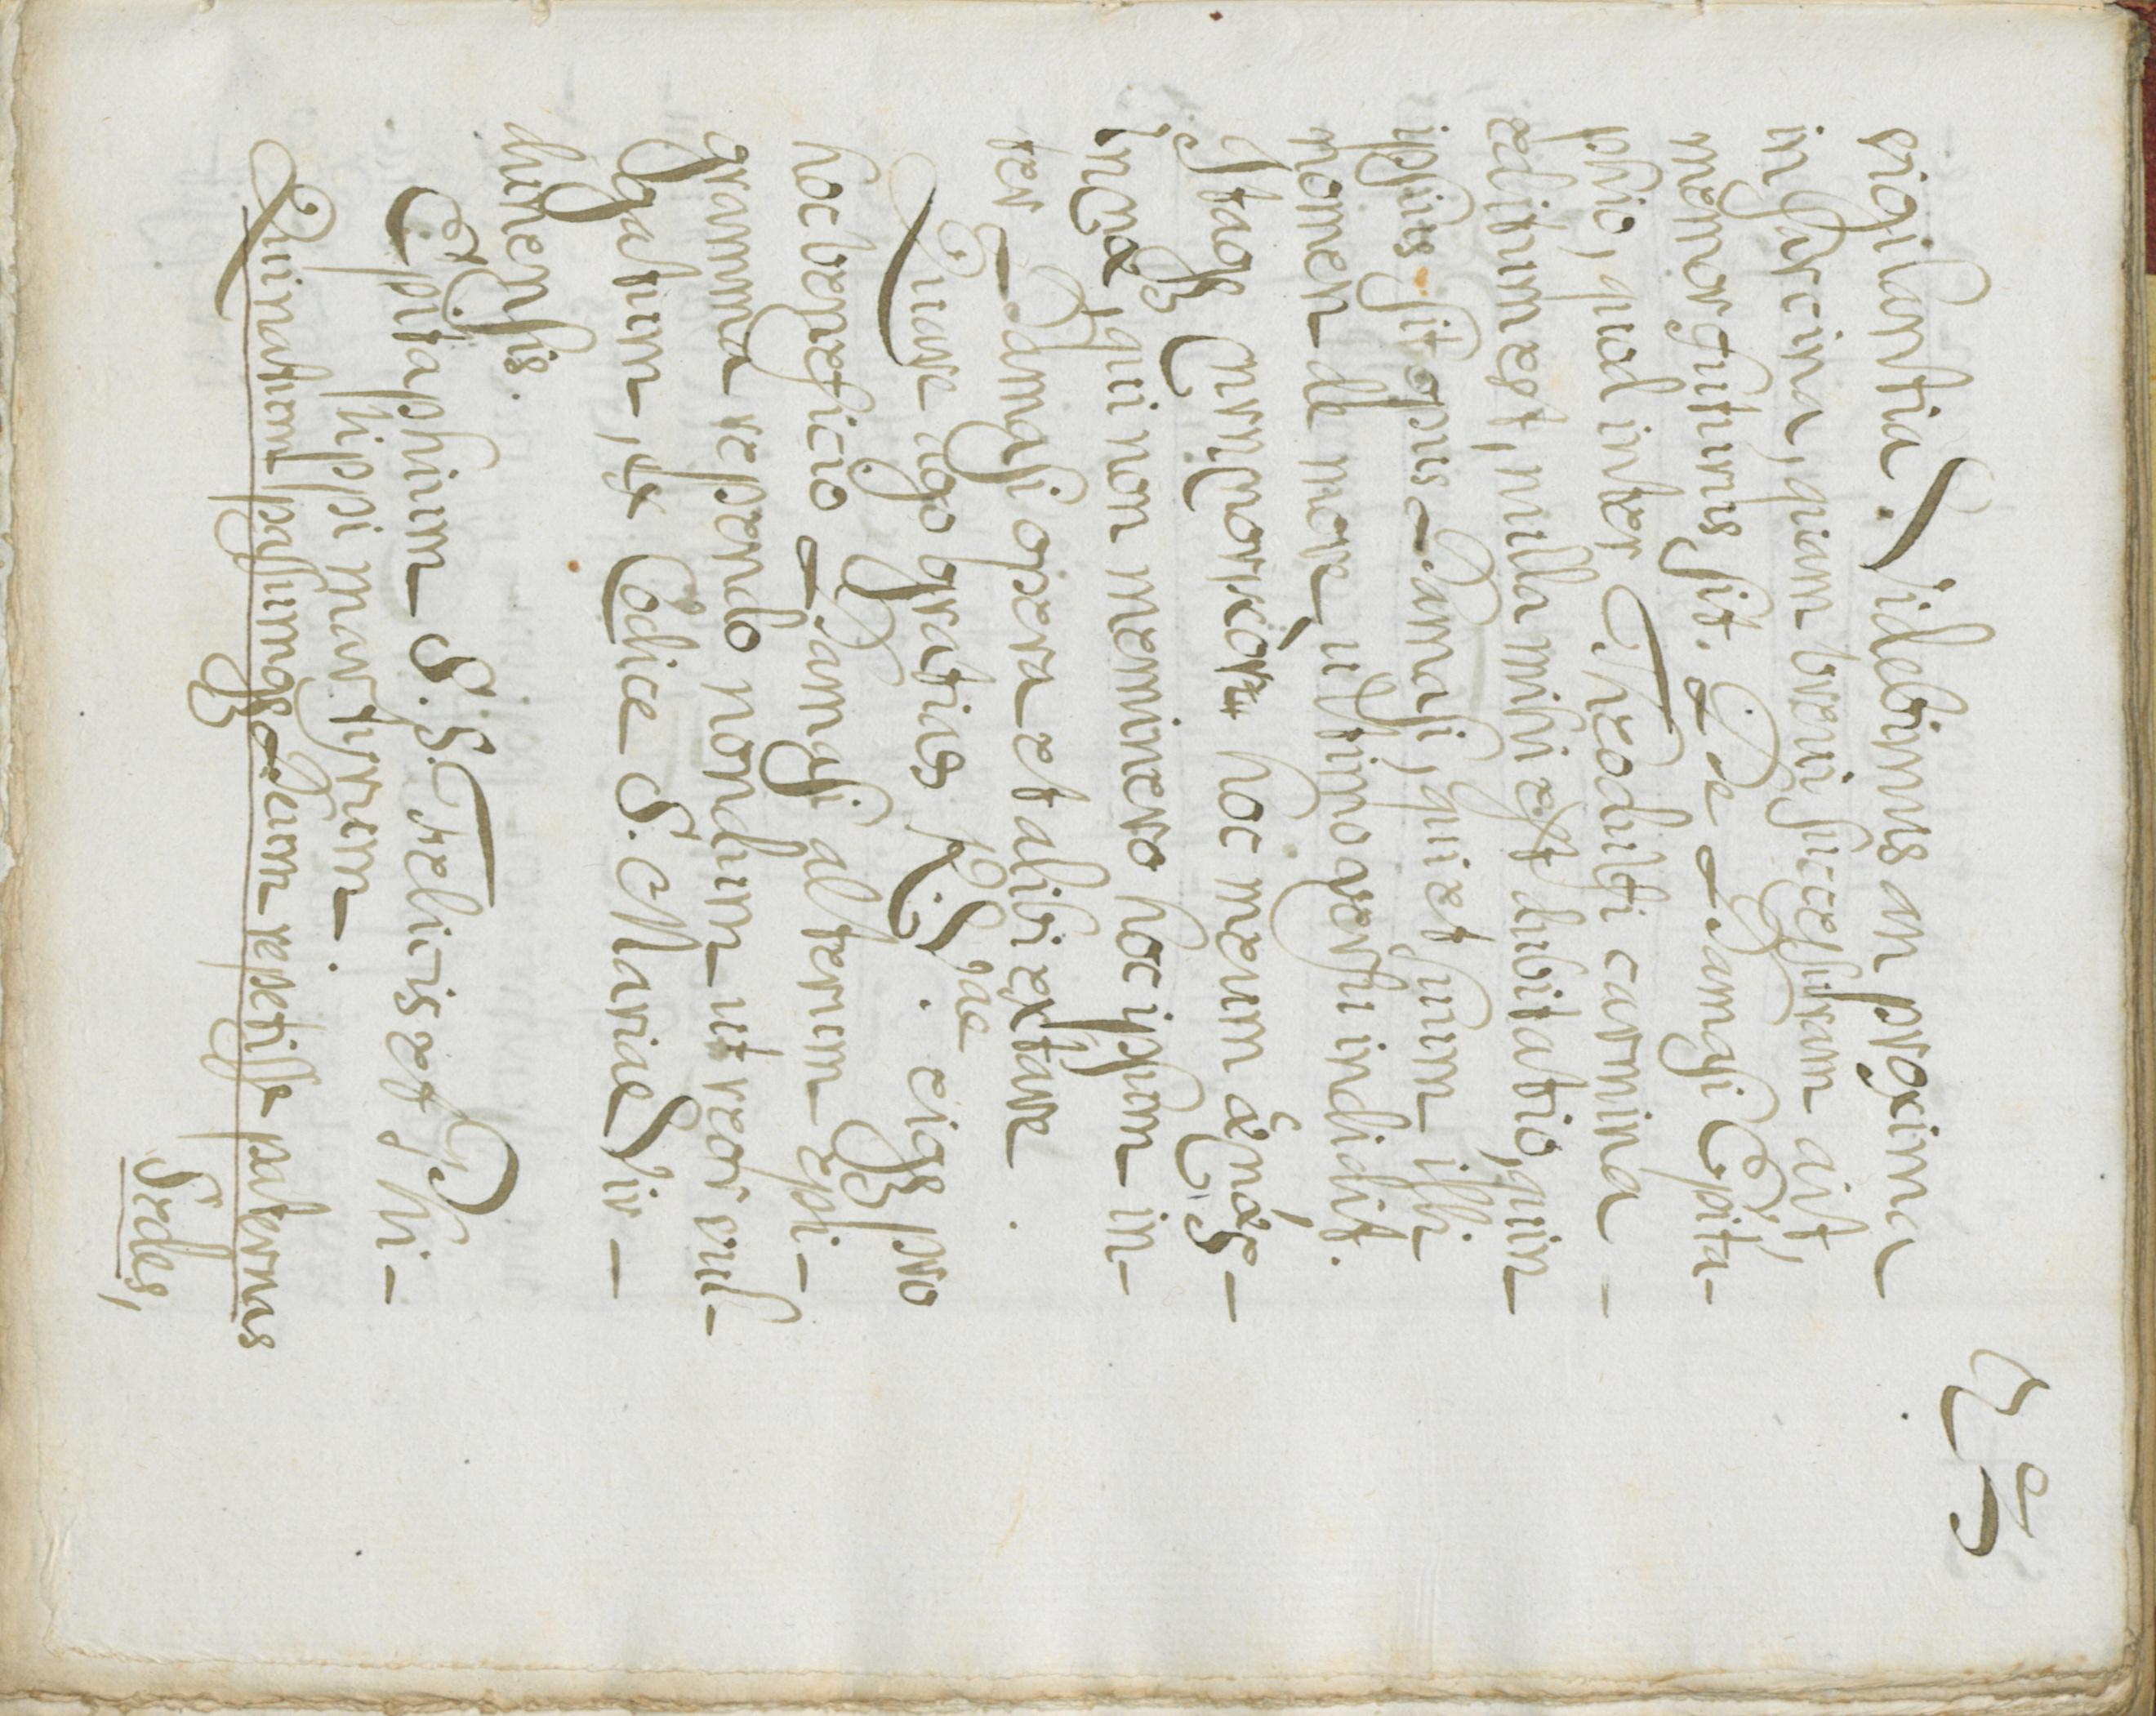 23
vigilantia. Videbimus an proxima
in sarcina, quam breui successuram ait,
memor futurus sit. De Damasi Epita-
phio, quod inter Theodulfi carmina
editum est, nulla mihi est dubitatio, quin
ipsius sit opus Damasi, qui et suum illi
nomen de more ultimo versu indidit.
Itaqꝫ corrigor hoc meum
qui non meminero hoc ipsum in-
ter Damasi opera et alibi extare.
Quare ago gratias R. Vrae eiqꝫ pro
hoc beneficio Damasi alterum epi-
gramma rependo nondum ut reor vul-
gatum, ex Codice S. Mariae Vir-
dunensis.
Epitaphium S.S. Felicis et Phi-
lippi martyrum.
Qui natum passumqꝫ Deum repetisse paternas
Sedes,